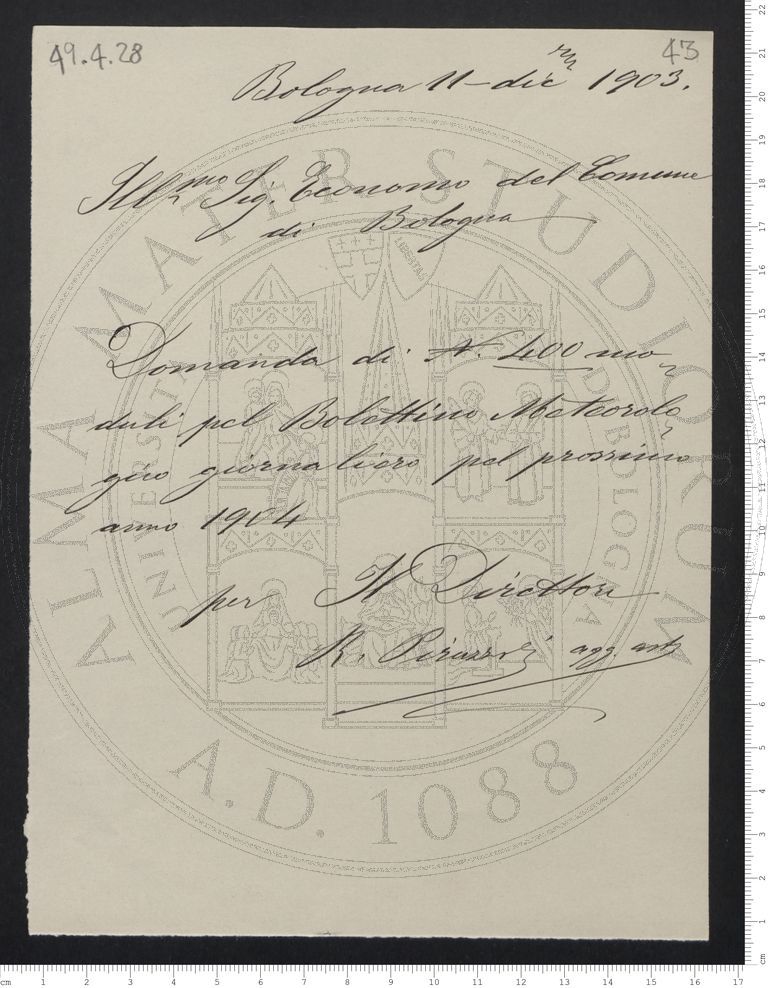 49.4.28
43
Bologna 11-dic^re 1903.
Ill^mo Sig. Economo del Comune
di Bologna
Domanda di N. 400 mo-
duli pel Bolettino Meteorolo
gico giornaliero pel prossimo
anno 1904
per Il Direttore
R. Pirazzoli agg. astr
ALMA MATER STUDIORUM
UNIVERSITÀ DI BOLOGNA
LIBERTAS
A.D. 1088